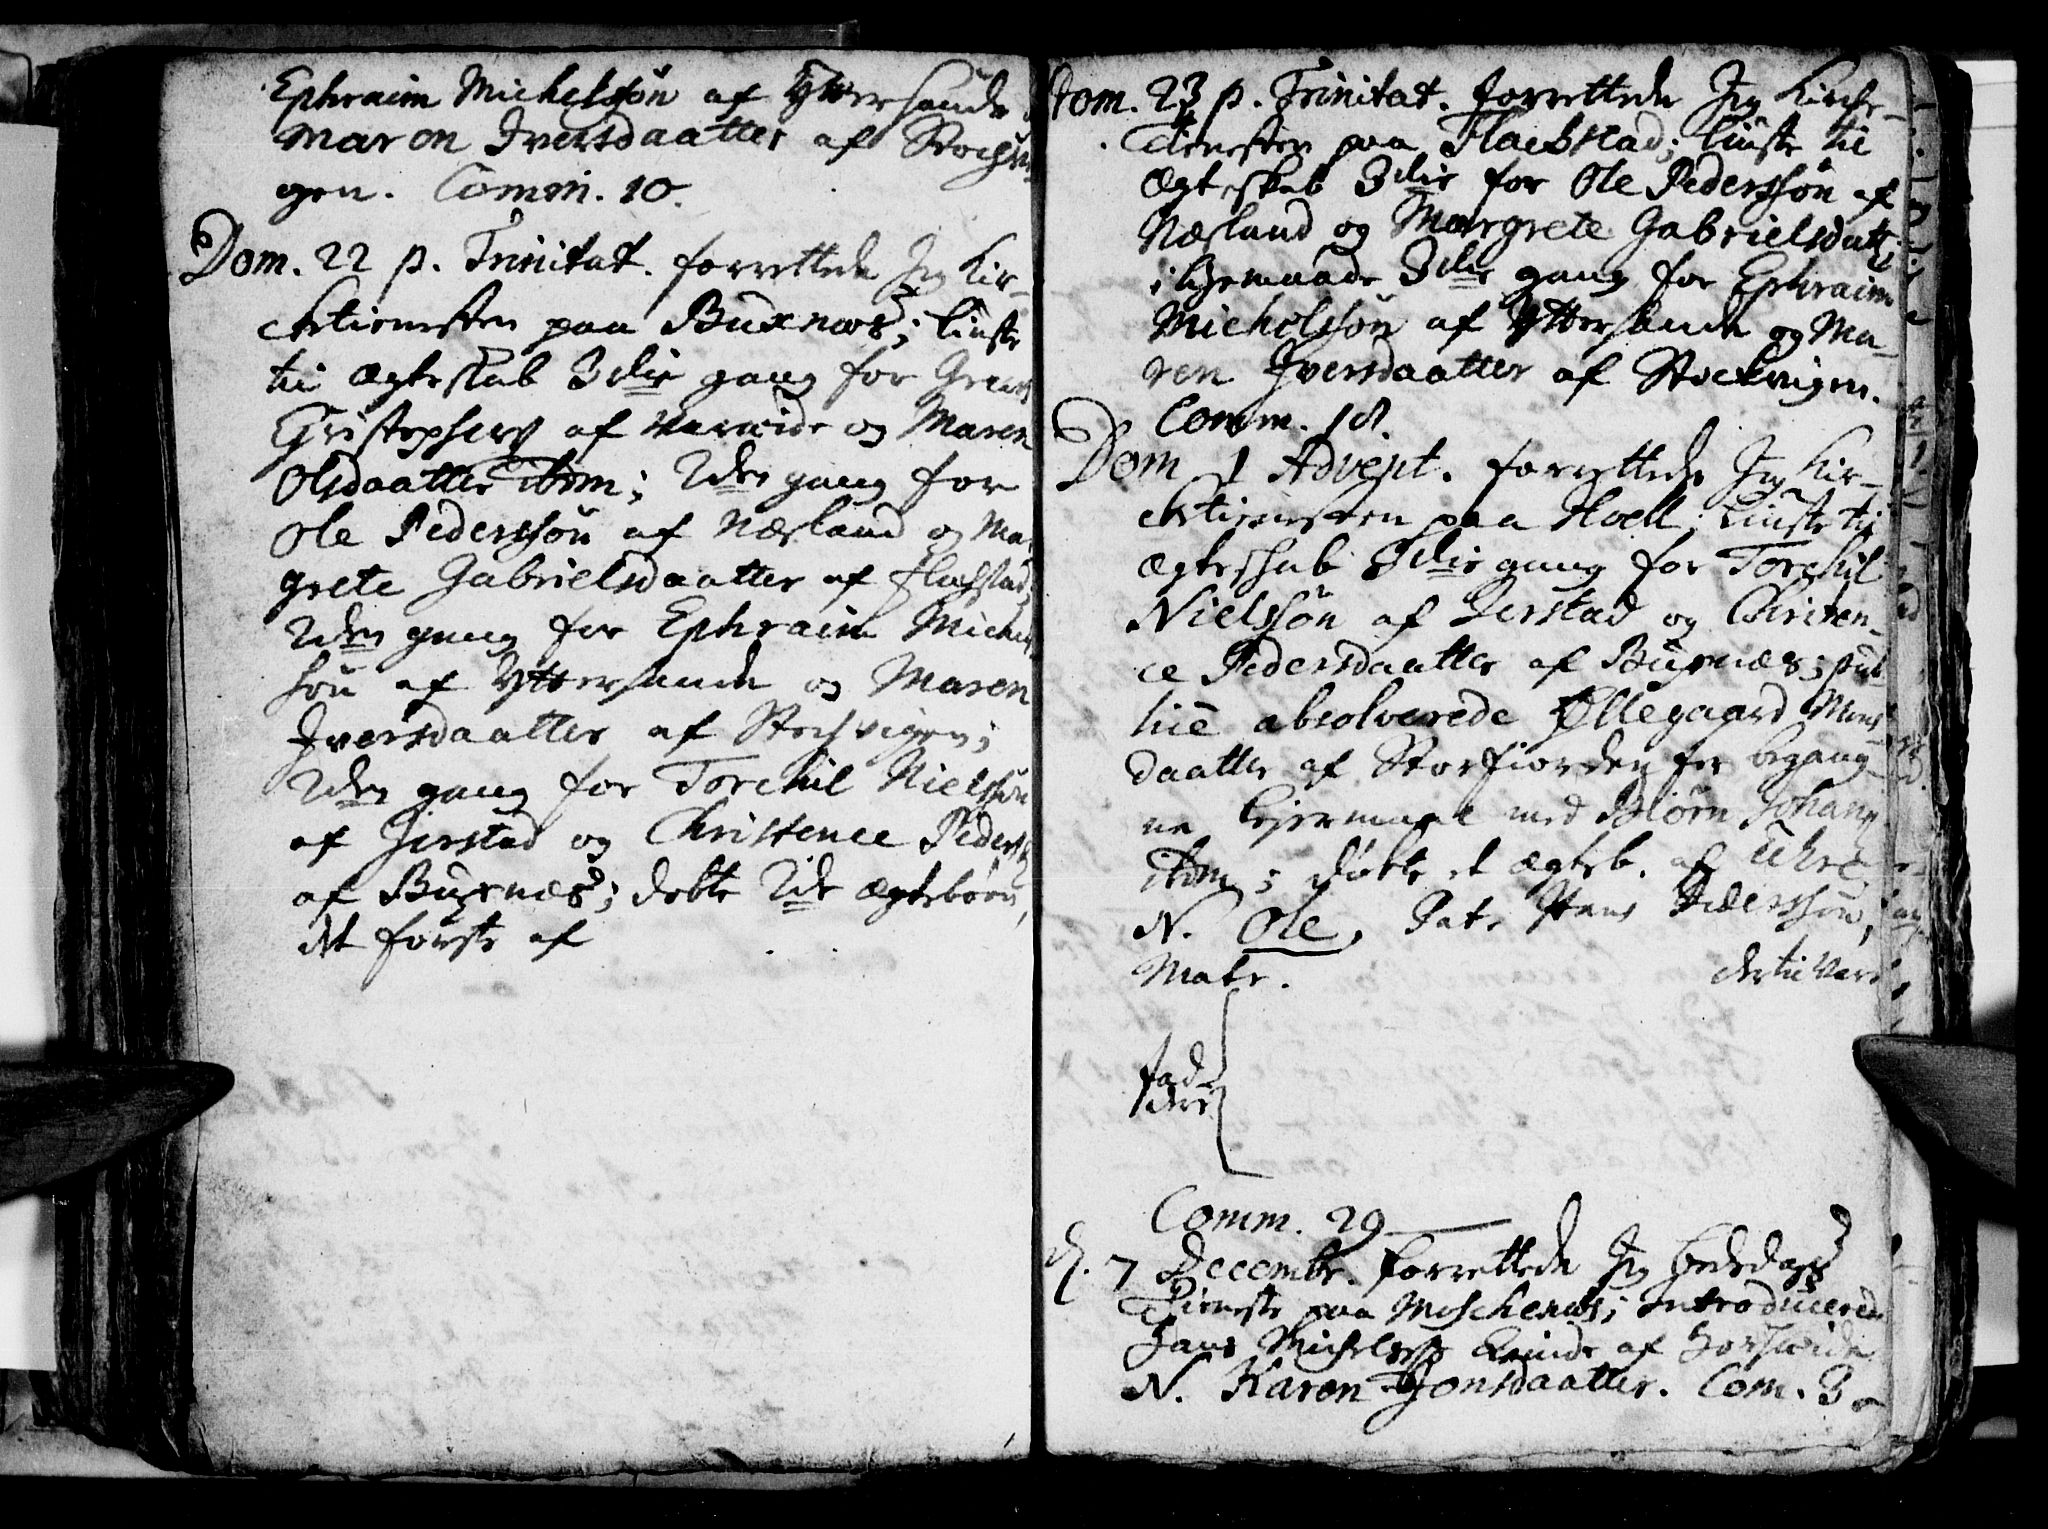 Ephraim Michelssøn af Yttersande
Maren Iversdaatter af Stochvi-
gen. Comm. 10.
Dom. 22 p. Trinitat. forrettede Jeg Kir-
chetienesten paa Buxnæs; liuste
til Ægteskab 3die gang for
Christophers af Varvide og Maren
Olsdaatter ibdm; 2den gang for
Ole Pederssøn af Næsland og Mar
grete Gabrielsdaatter af Flachstad;
2den gang for Ephraim Michels
søn af Yttersande og Maren
Iversdaatter af Stochvigen;
2den gang for Torchil Nielssøn
af Jerstad og Christence Peders
af Buxnæs; døbte 2de ægtebørn,
det første af
Dom. 23 p. Trinitat. forrettede Jeg Kirche-
tienesten paa Flachstad; liuste til
Ægteskab 3die for Ole Pederssøn af
Næsland og Margrete Gabrielsdatt:
i ligemaade 3die gang for Ephraim
Michelssøn af Yttersande og Ma-
ren Iversdaatter af Stockvigen.
Comm. 18.
Dom 1 Advent. forrettede Jeg Kir-
chetienesten paa Hoell; liuste til
Ægteskab 3die gang for Torchil
Nielssøn af Jerstad og Christen-
ce Pedersdaatter af Buxnæs; pub-
licè absolverede Øllegaard Mons
daatter af Storfiorden for begang-
ne leiermaal med Biørn Johans
ibdm; døbte et ægteb. af Uhre
N. Ole, Pater Hans Pederssøn,
Mater. der til vare
fad
dere
Comm. 29
d. 7 Decembr. forrettede Jeg bededags
tieneste paa Moschenæs; introducerede
Hans Michelss Qvinde af
N. Karen Jonsdaatter. Com. 3